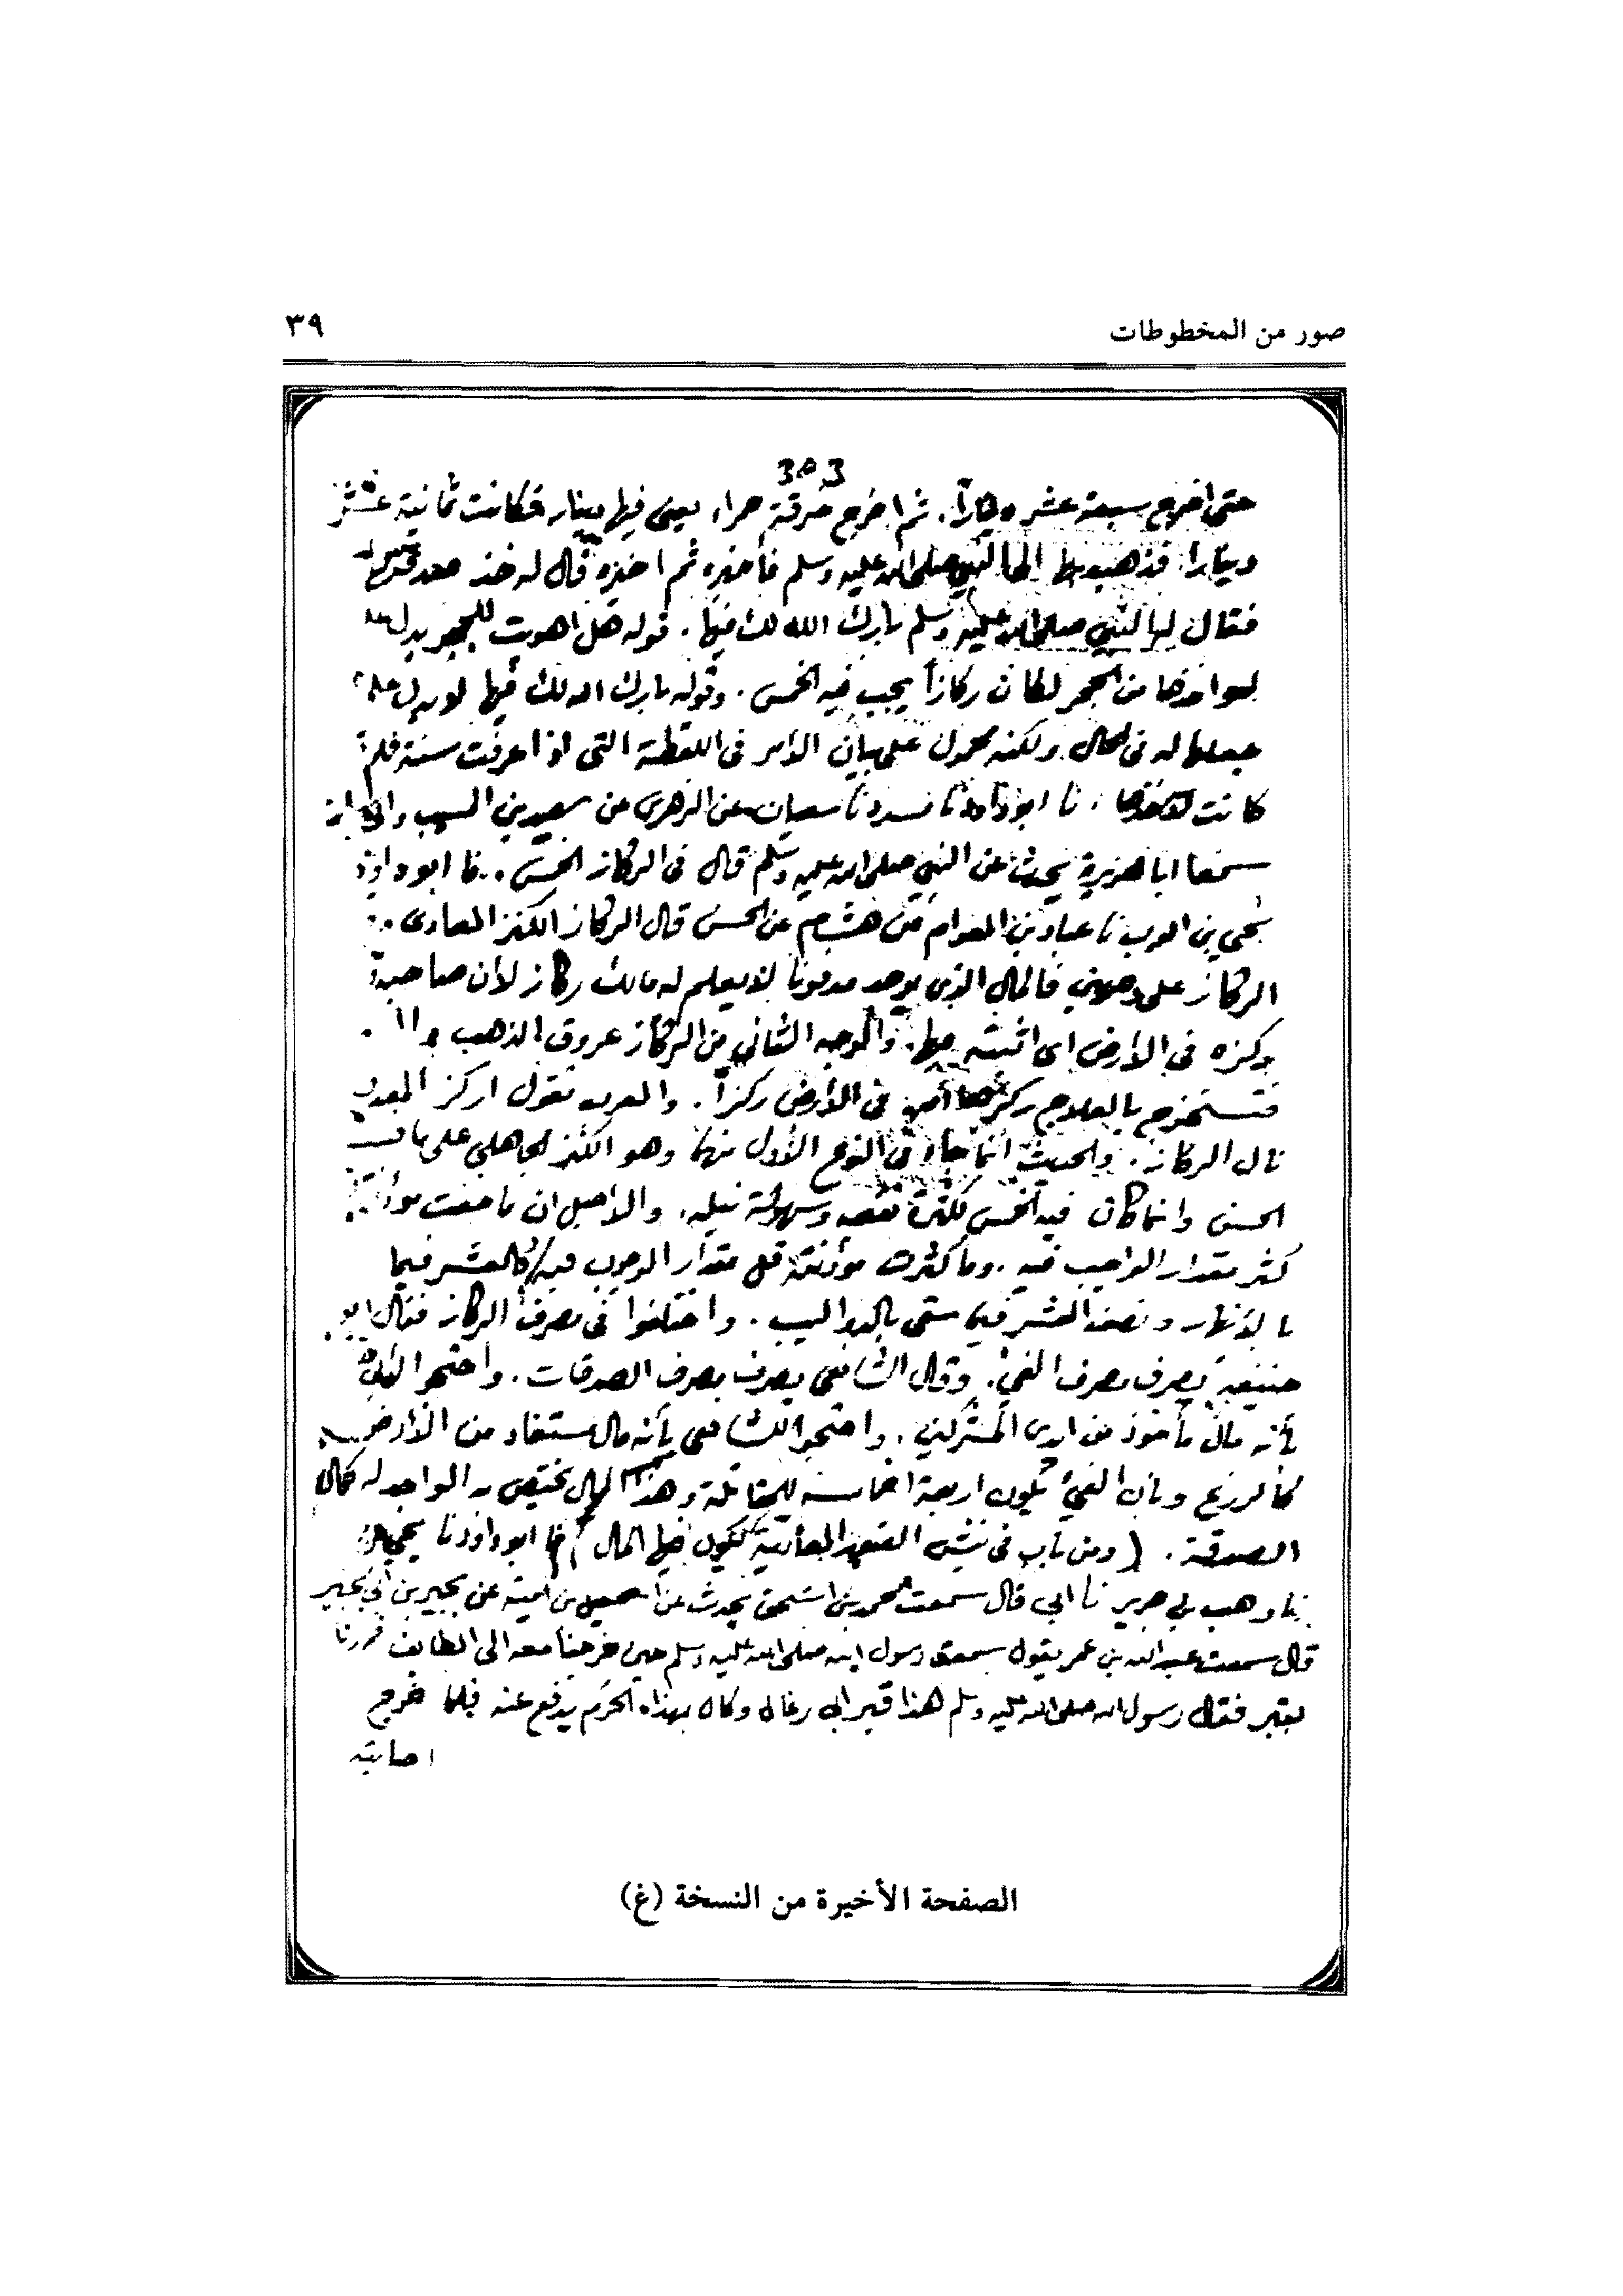 صور من المخطوطات
٣٩
حتى اخرج سبعة عشر دينارًا. ثم اخرج خرقة حمراء يعنى فيها دينار فكانت ثمانية عشر
دينارا فذهب بها الى النبي صلى الله عليه وسلم فأخبره قال له خذ صدقتها
فقال له النبي صلى الله عليه وسلم بارك الله لك فيها. قوله هل اهويت للجحر يدل
لو اخذها من الجحر لكان ركازاً يجب فيه الخمس. وقوله بارك الله لك فيها لا يدل على
جعلها له فى الحال ولكنه محمول على بيان الأمر فى اللقطة التى اذا عرفت سنة فلم
كانت لآخذها. نا ابو داود نا مسدد نا سفيان عن الزهرى عن سعيد بن المسيب
سمعا ابا هريرة يحدث عن النبي صلى الله عليه وسلم قال فى الركاز الخمس. نا ابو داود
يحيى بن ايوب نا عباد بن العوام عن هشام عن الحسن قال الركاز الكنز العادى
الركاز على وجهين فالمال الذى يوجد مدفونا لا يعلم له مالك ركاز لأن صاحبه
ركزه فى الارض اى اثبته فيها. والوجه الثاني من الركاز عروق الذهب
فتستخرج بالعلاج ركزها فى الأرض ركزاً. والعرب تقول اركز المعدن
نال الركاز. والحديث انما جاء فى النوع الأول منها وهو الكنز الجاهلي على ما
الحسن وانما كان فيه الخمس لكثرة نفعه وسهولة نيله. والاصل ان ما خفت
كثر مقدار الواجب فيه. وما كثرت مؤنته قل مقدار الوجوب فيه كالعشر فيما
بالأنهار ونصف العشر فيما سقى بالدواليب. واختلفوا فى مصرف الركاز فقال ابو
حنيفة يصرف مصرف الفيء. وقال الشافعي يصرف مصرف الصدقات. واحتجوا
بأنه مال مأخوذ من ايدى المشركين. واحتجوا للشافعى بأنه مال مستفاد من الأرض
كالزرع وبان الفيء يكون اربعة اخماسه للمقاتلة وهذا المال يختص به الواجد له كمال
الصدقة. (ومن باب فى نبش القبور العادية يكون فيها المال) نا ابو داود نا يحيى
نا وهب بن جرير نا ابي قال سمعت محمد بن اسحق يحدث عن اسمعيل بن امية عن بجير بن أبي بجير
قال سمعت عبد الله بن عمر يقول سمعت رسول الله صلى الله عليه وسلم حين خرجنا معه الى الطائف فمررنا
بقبر فقال رسول الله صلى الله عليه وسلم هذا قبر ابى رغال وكان بهذا الحرم يدفع عنه فلما خرج
اصابته
الصفحة الأخيرة من النسخة (غ)